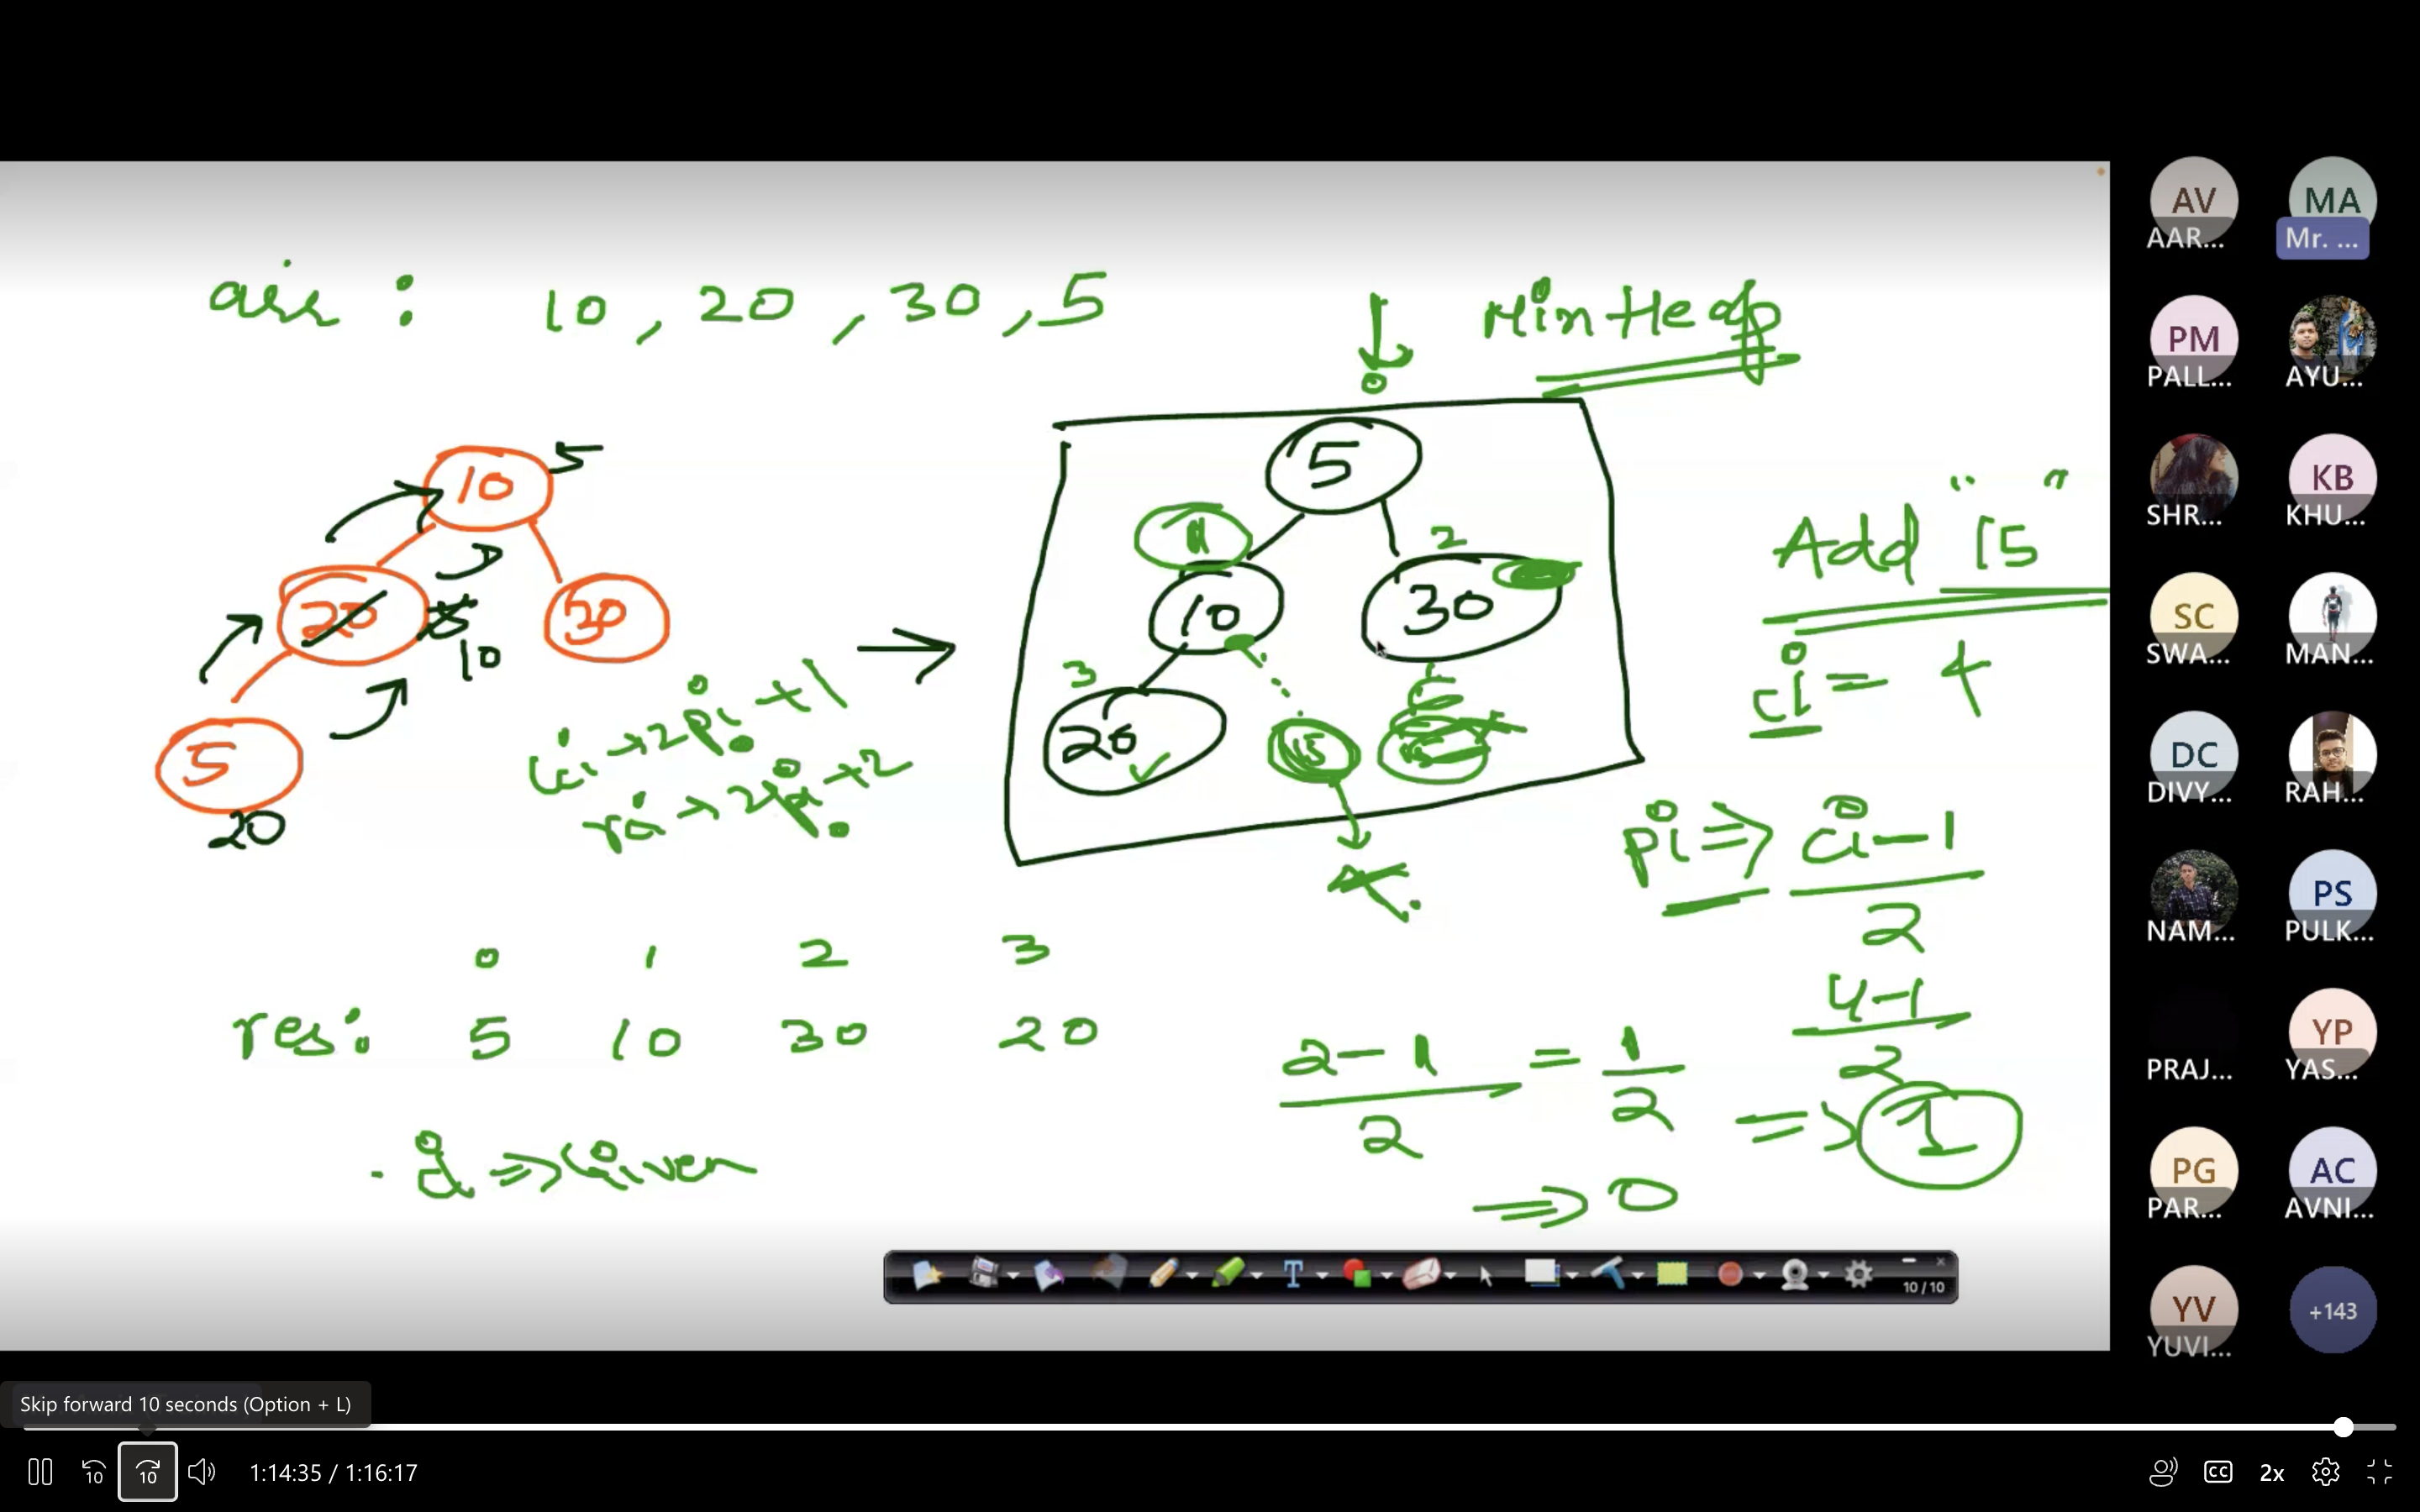 arr : 10 , 20 , 30 , 5
MinHeap
0
10 5
5
1
2
20 10
30
10
30
Add "15"
ci = 4
lci → 2pi + 1
rci → 2pi + 2
3
5
20
20
15
4
pi ⇒ ci - 1
2
4 - 1
2
⇒ 1
0 1 2 3
res : 5 10 30 20
2 - 1 = 1
2 2
⇒ 0
⇒ Given
10 / 10
AV
AAR...
MA
Mr. ...
PM
PALL...
AYU...
SHR...
KB
KHU...
SC
SWA...
MAN...
DC
DIVY...
RAH...
NAM...
PS
PULK...
PRAJ...
YP
YAS...
PG
PAR...
AC
AVNI...
YV
YUVI...
+143
Skip forward 10 seconds (Option + L)
10 10 1:14:35 / 1:16:17 CC 2x